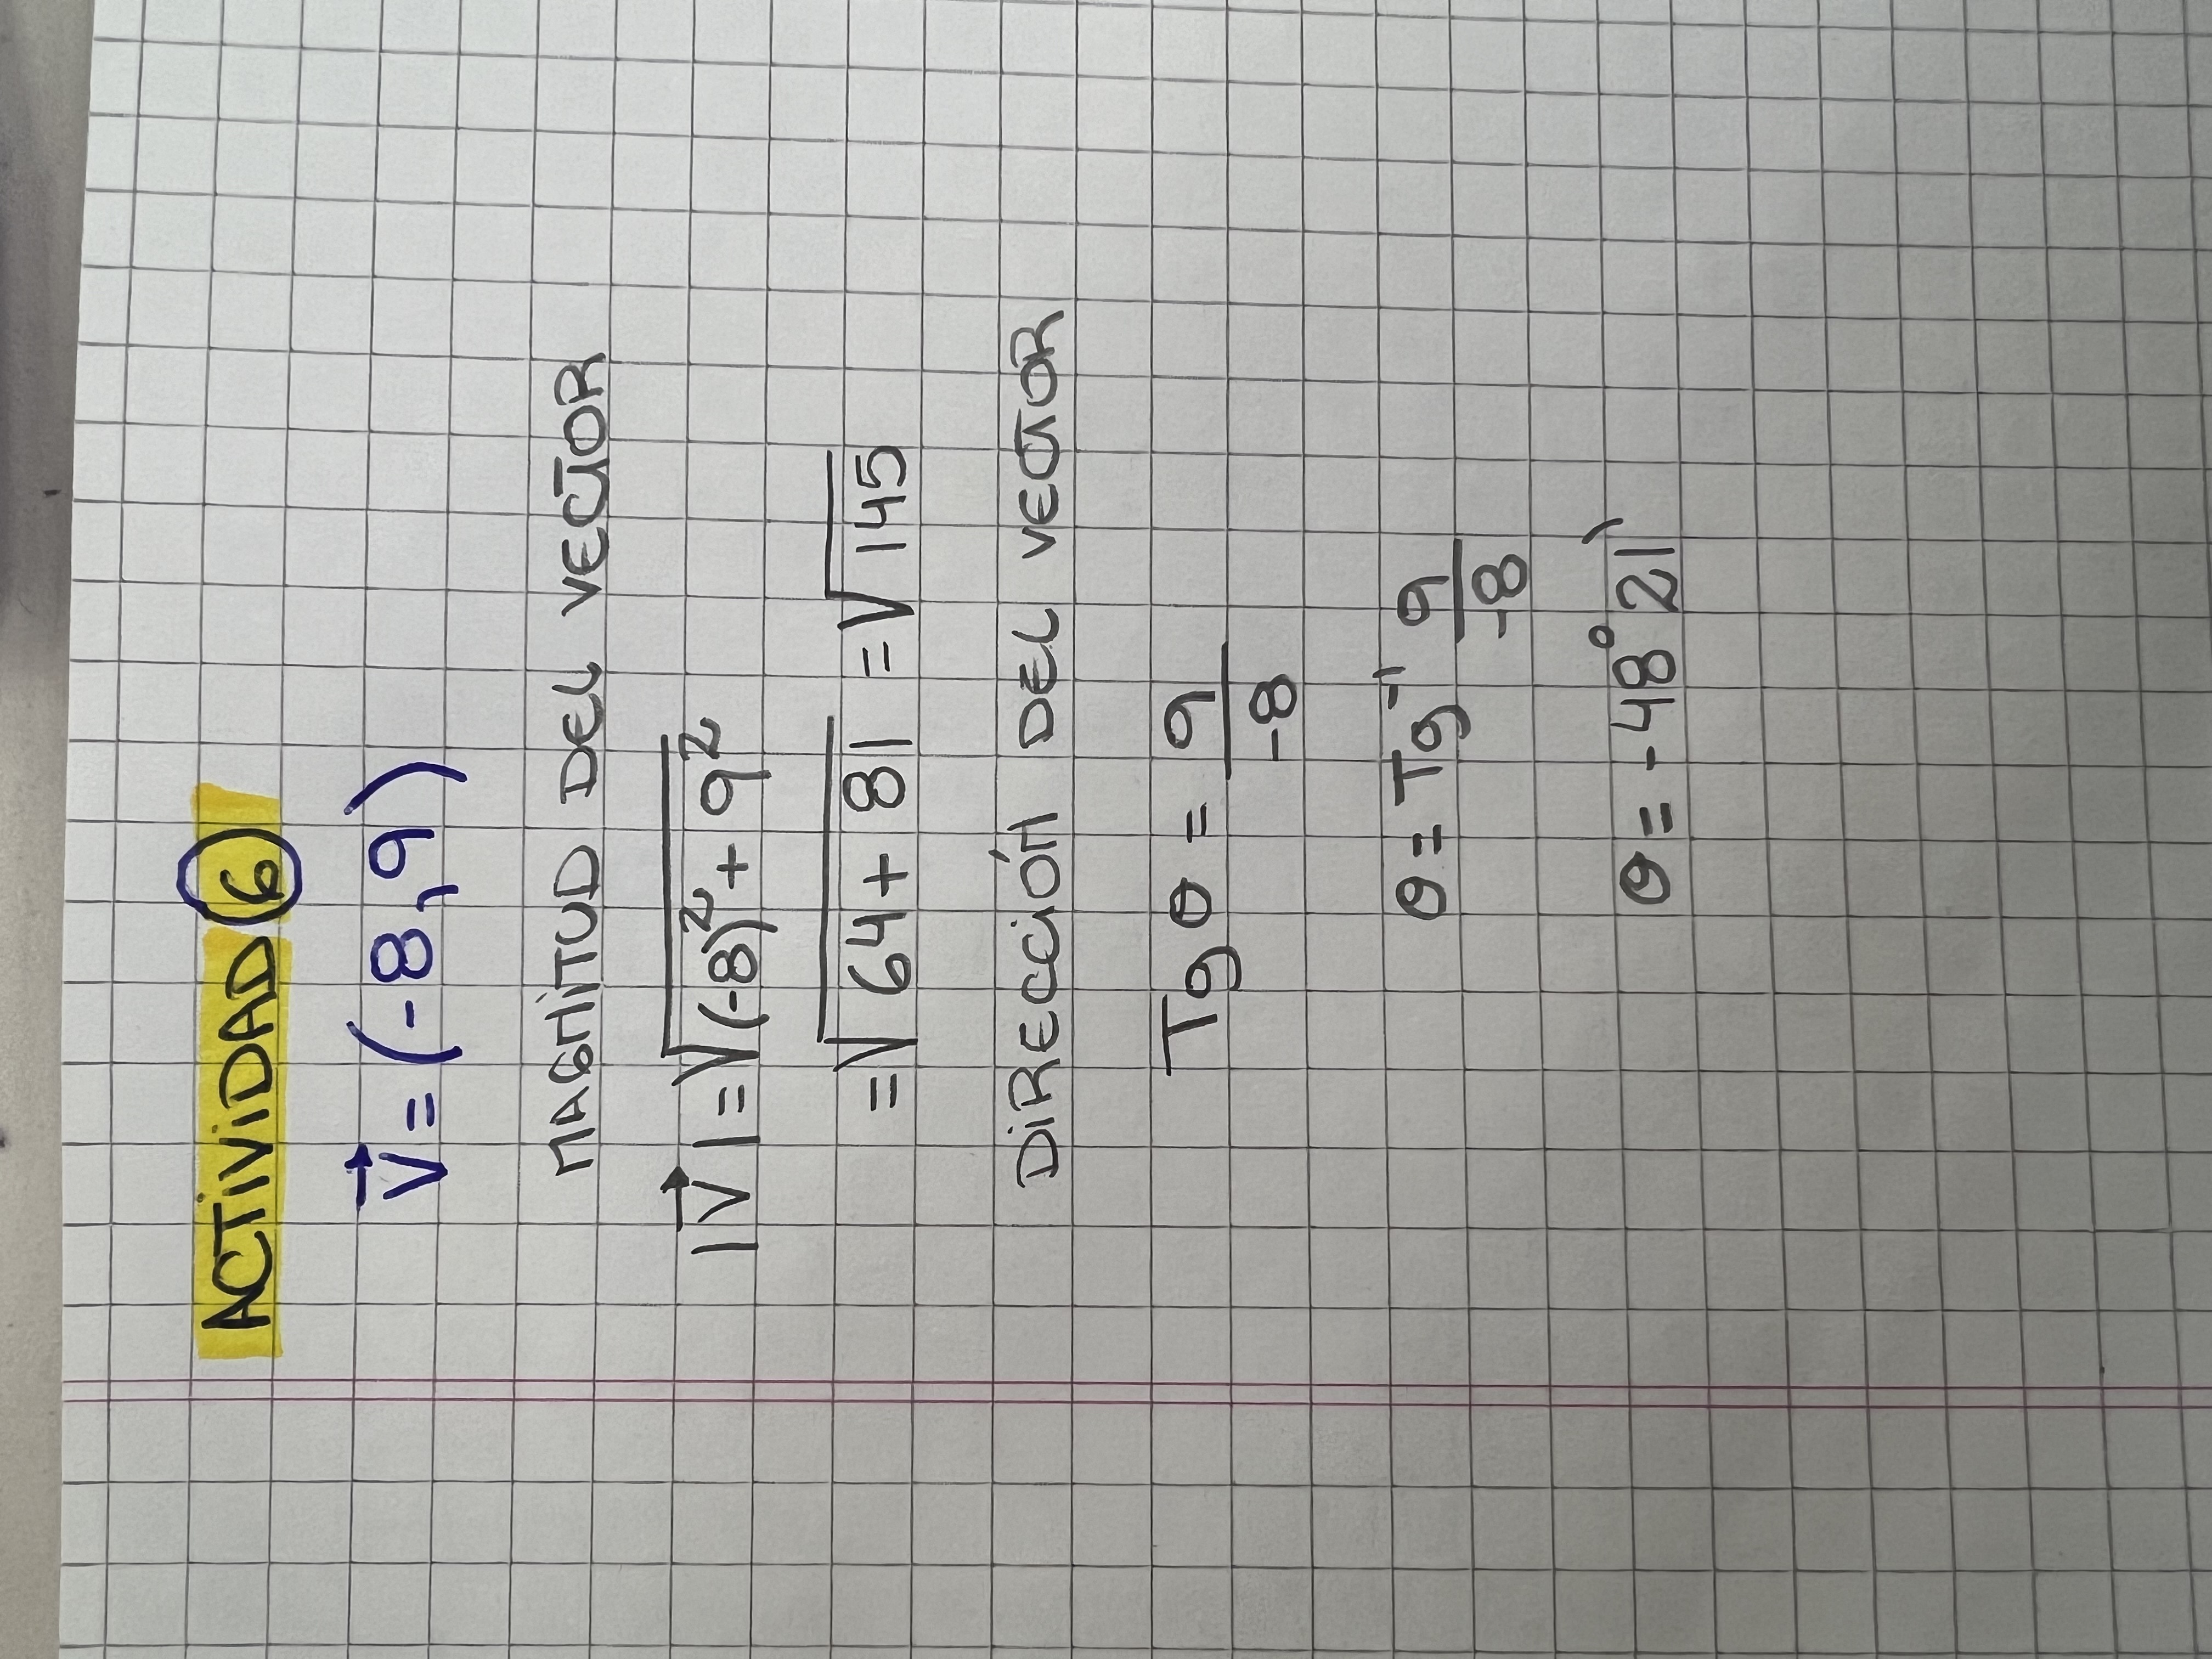 ACTIVIDAD 6
V⃗ = (-8,9)
MAGNITUD DEL VECTOR
|V⃗| = √(-8)² + 9²
= √64 + 81 = √145
DIRECCIÓN DEL VECTOR
Tg θ = 9/-8
θ = Tg⁻¹ 9/-8
θ = -48° 21'